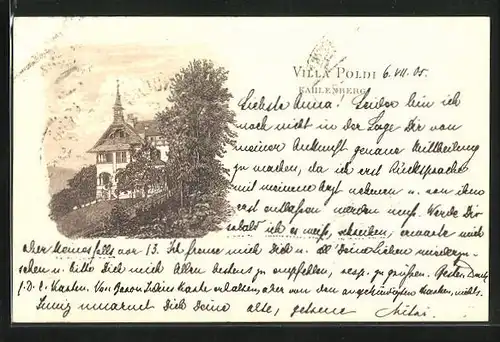 VILLA POLDI 6. VII. 05.
KAHLENBERG
Liebste Anna! Leider bin ich
noch nicht in der Lage Dir von
meiner Ankunft genaue Mittheilung
zu machen, da ich erst Rücksprache
mit meinem Arzt nehmen u. von ihm
erst entlassen werden muß. Werde Dir
sobald ich es weiß, schreiben, erwarte mich
aber keinesfalls vor 13. Ich freue mich Dich u. all Deine Lieben wiederzu-
sehen u. bitte Dich mich Allen bestens zu empfehlen, resp. zu grüßen. Besten Dank
f. D. l. Karten. Von Karte erhalten, aber von den angekündigten Marken, nichts.
Innig umarmt Dich Deine alte, getreue